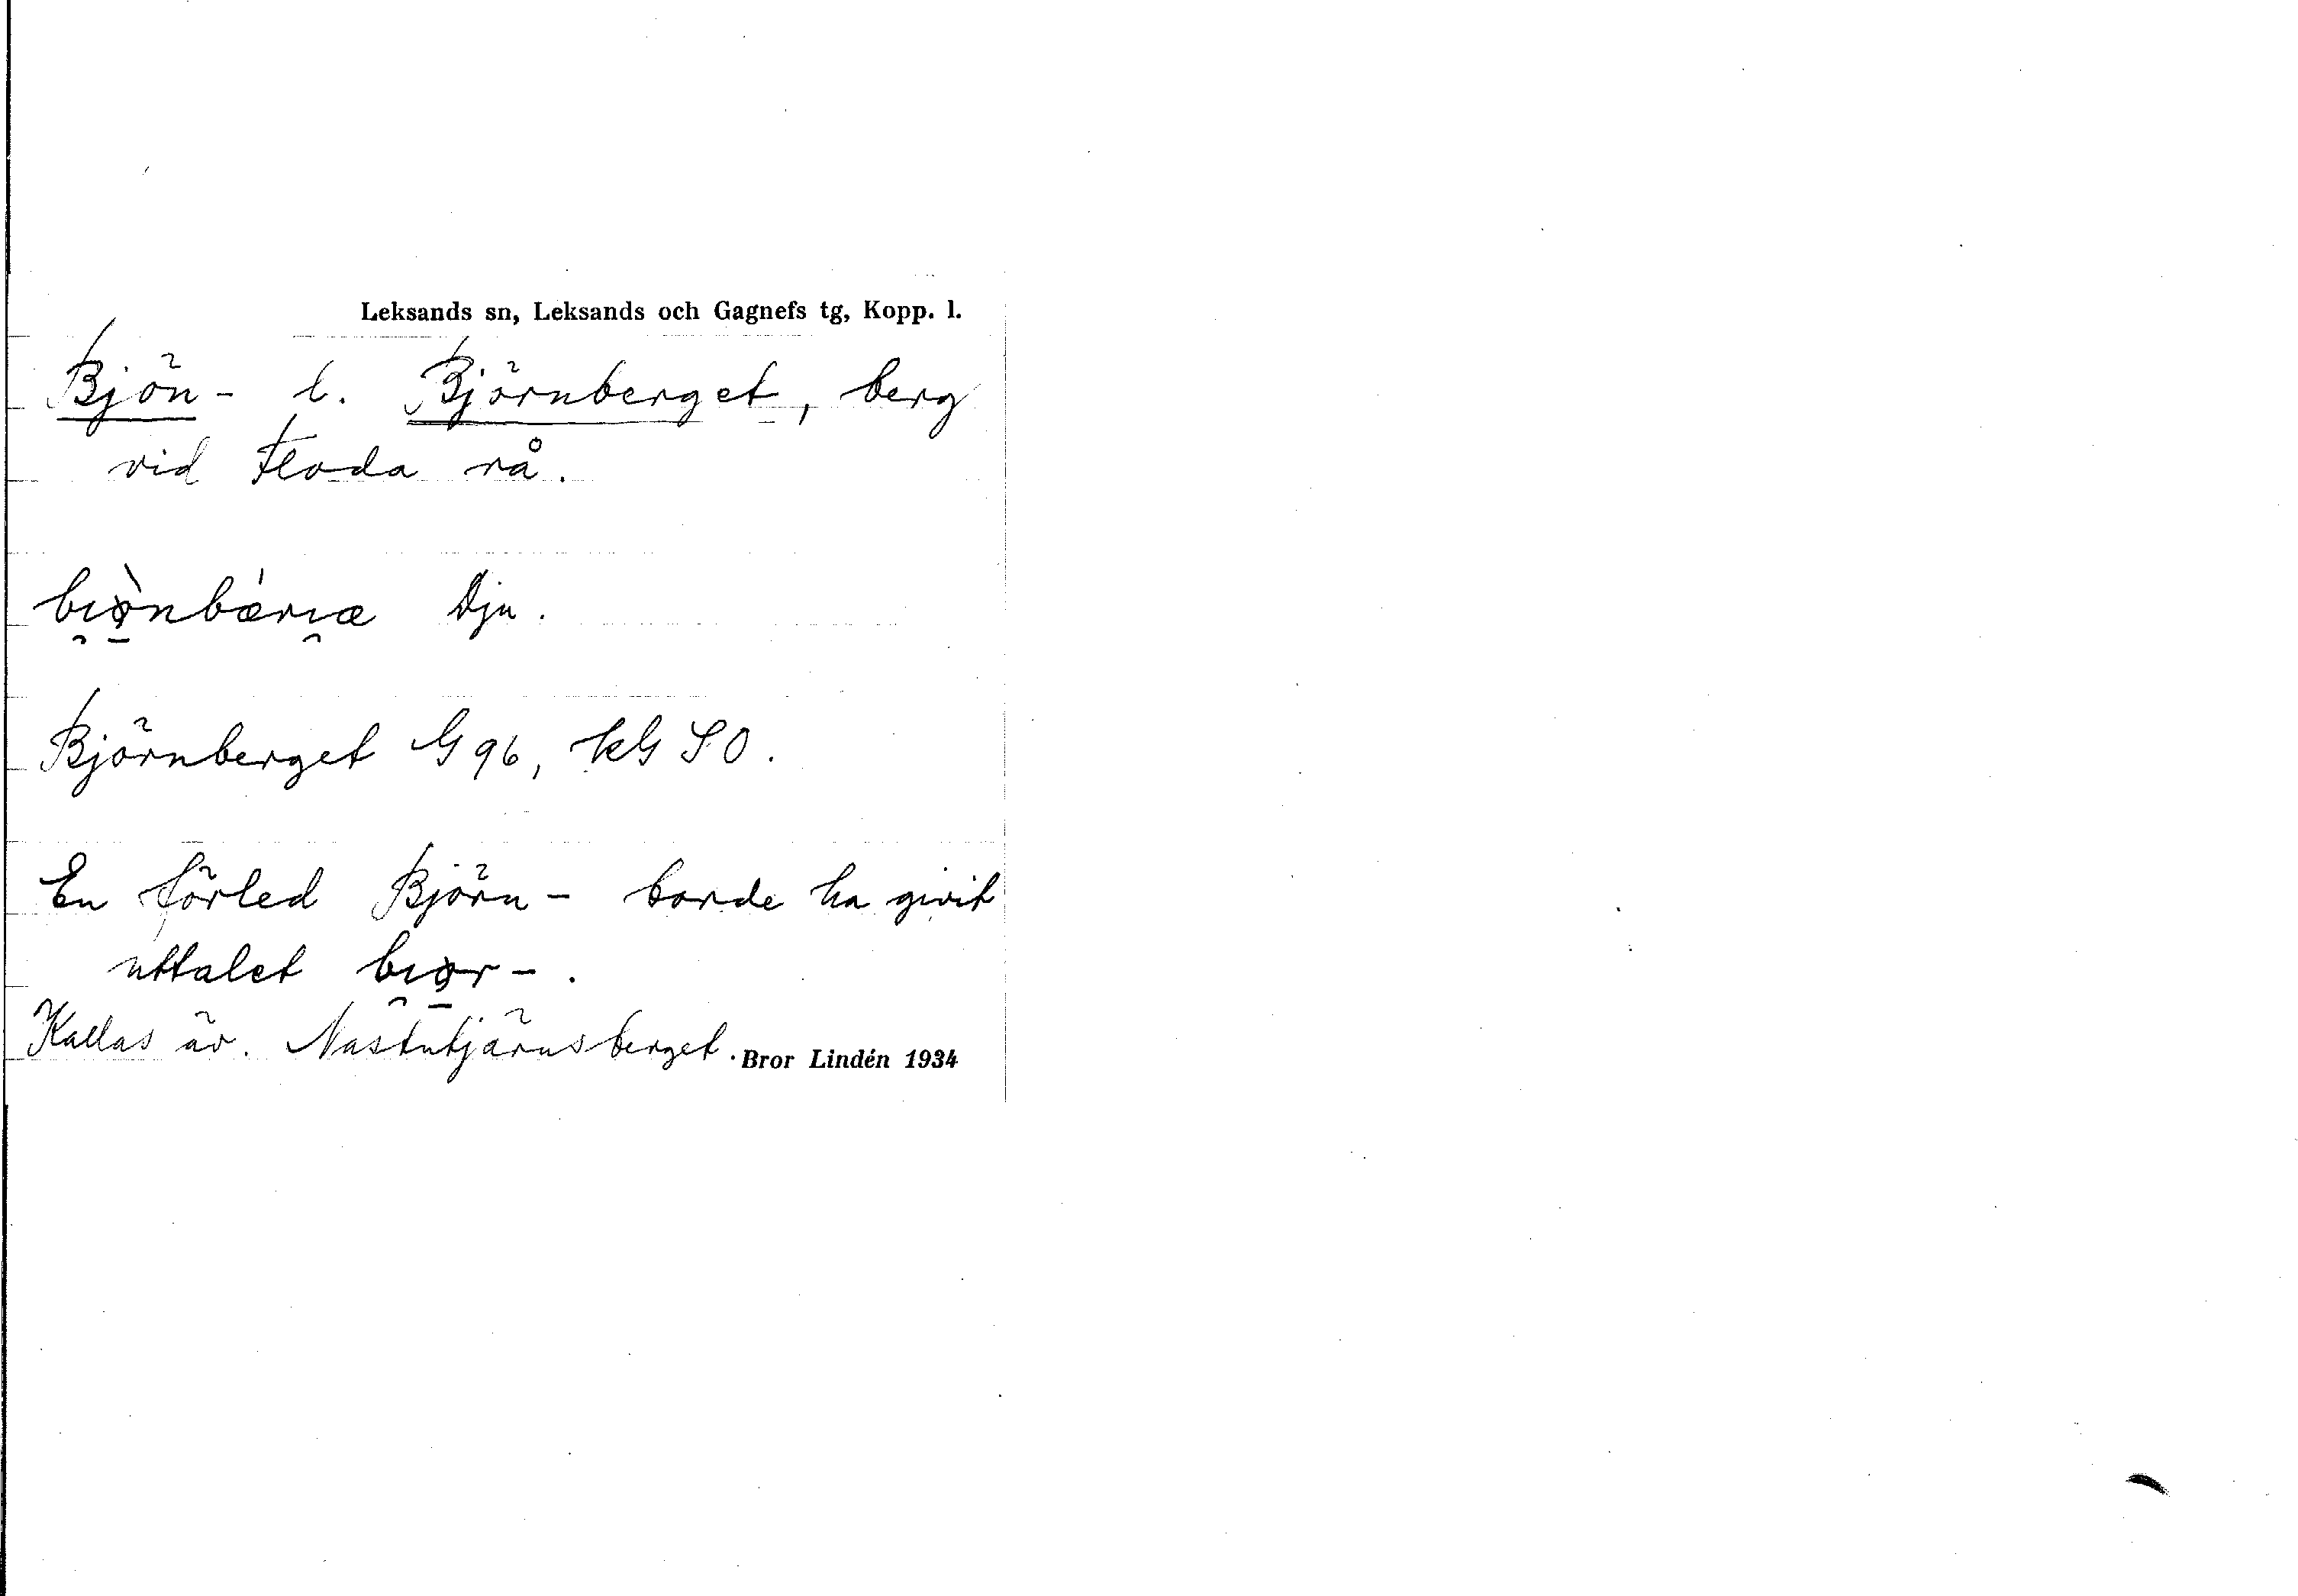 Leksands sn, Leksands och Gagnefs tg, Kopp. l.
Bjön- l. Björnberget, berg
vid Floda rå.
bi̯ø̠̀nbǽri̯æ Dju.
Björnberget G 96, kG SO.
En förled Björn- borde ha givit
uttalet bi̯ø̠r-.
Kallas äv. Nästutjärnsberget.
Bror Lindén 1934